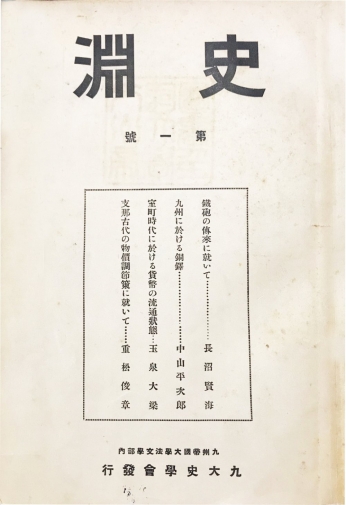 史淵
第一號
鐵砲の傳來に就いて…………………長沼賢海
九州に於ける銅鐸…………………中山平次郎
室町時代に於ける貨幣の流通狀態…玉泉大梁
支那古代の物價調節策に就いて……重松俊章
九州帝國大學法文學部內
九大史學會發行